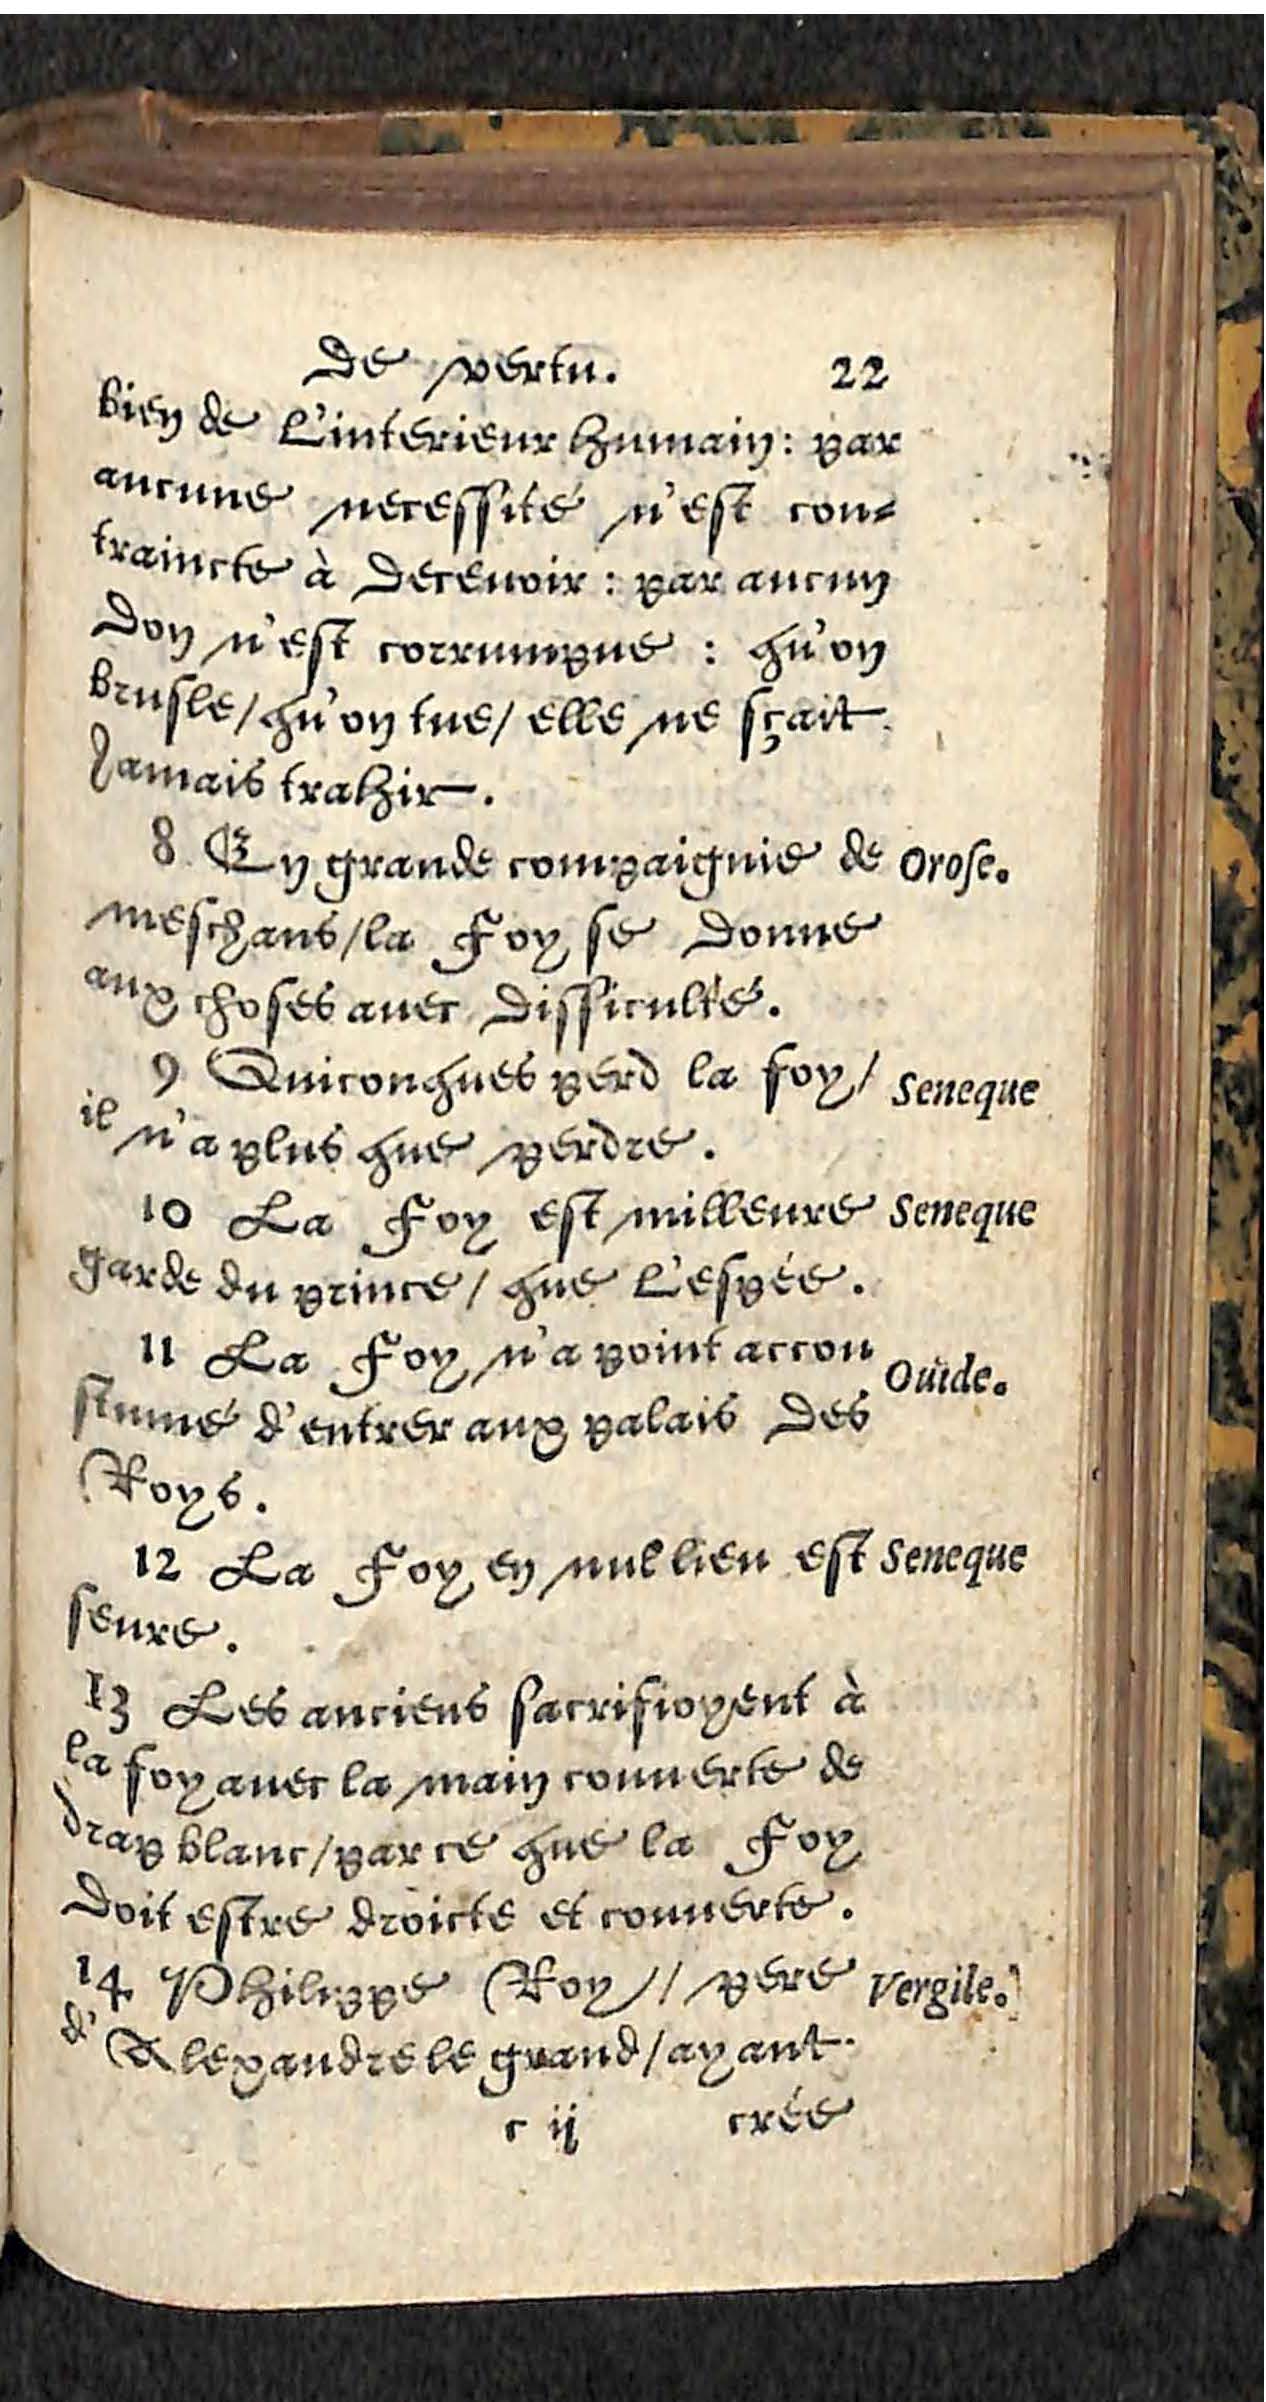 De vertu. 22
bien de l'interieur humain: par
aucune necessité n'est con-
traincte à decevoir: par aucun
don n'est corrumpue: qu'on
brusle/qu'on tue/ elle ne sçait
Jamais trahir.
8 En grande compaignie de Orose.
meschans/la Foy se donne
aux choses avec difficulté.
9 Quiconques perd la foy/ Seneque
il n'a plus que perdre.
10 La Foy est milleure Seneque
garde du prince/ que l'espée.
11 La Foy n'a point accou
stumé d'entrer aux palais des Ouide.
Roys.
12 La Foy en nul lieu est Seneque
seure.
13 Les anciens sacrifioyent à
la foy avec la main couverte de
drap blanc/par ce que la Foy
doit estre droicte et couverte.
14 Philippe Roy// pere Vergile.
d'Alexandre le grand/ayant
c ij crée